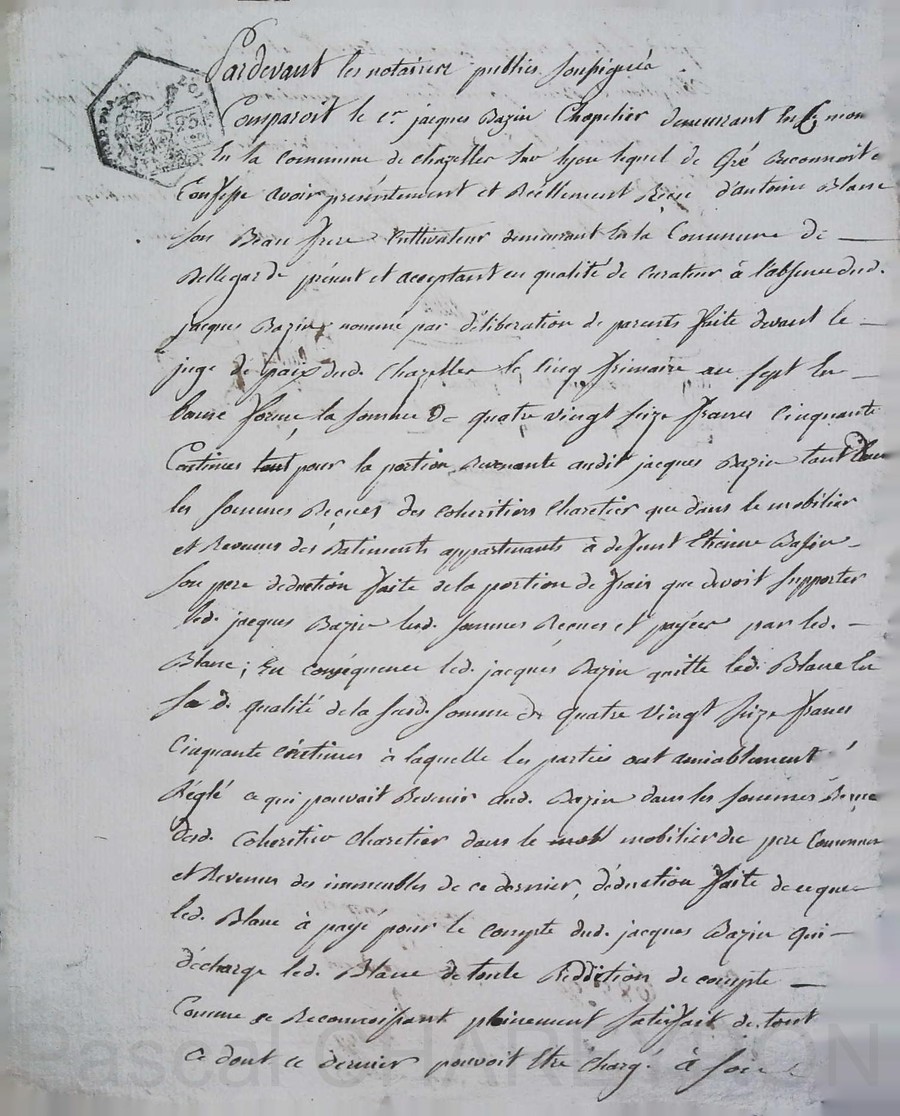 Pardevant les notaires publics soussignés
Comparoit le cr. jacques Bazin Chapelier demeurant
En la Commune de chazelles sur lyon lequel de Gré Reconnoit &
Confesse avoir présentement et Réellement Reçu d'antoine Blanc
son Beau frere Cultivateur demeurant En la Commune de —
Bellegarde présent et acceptant en qualité de curateur à l'absence dud.
jacques Bazin, nommé par déliberation de parents faite devant le —
juge de paix dud. Chazelles le Cinq frimaire an sept En —
bonne forme, la somme De quatre vingt seize francs Cinquante
Centimes tant pour la portion Revenante audit jacques Bazin tant dans
les sommes Reçues des Coheritiers Charetier que dans le mobilier
et Revenus des Batiments appartenants à defunt Etienne Bazin —
son pere deduction faite de la portion de frais que devoit supporter
led. jacques Bazin lesd. sommes Reçues et payées par led. —
Blanc; En conséquence led. jacques Bazin quitte led. Blanc En
sa d. qualité de la susd. somme de quatre Vingt seize francs
Cinquante centimes à laquelle les parties ont amiablement
Réglé ce qui pouvait Revenir aud. Bazin dans les sommes Reçues
desd. Coheritier Charetier dans le mobilier du pere Commun
et Revenus des immeubles de ce dernier, déduction faite de ce que
led. Blanc à payé pour le compte dud. jacques Bazin qui —
décharge led. Blanc de toute Reddition de compte —
Comme se Reconnoissant pleinement satisfait de tout
ce dont ce dernier pouvoit Etre chargé à son
Pascal CHAREYRON